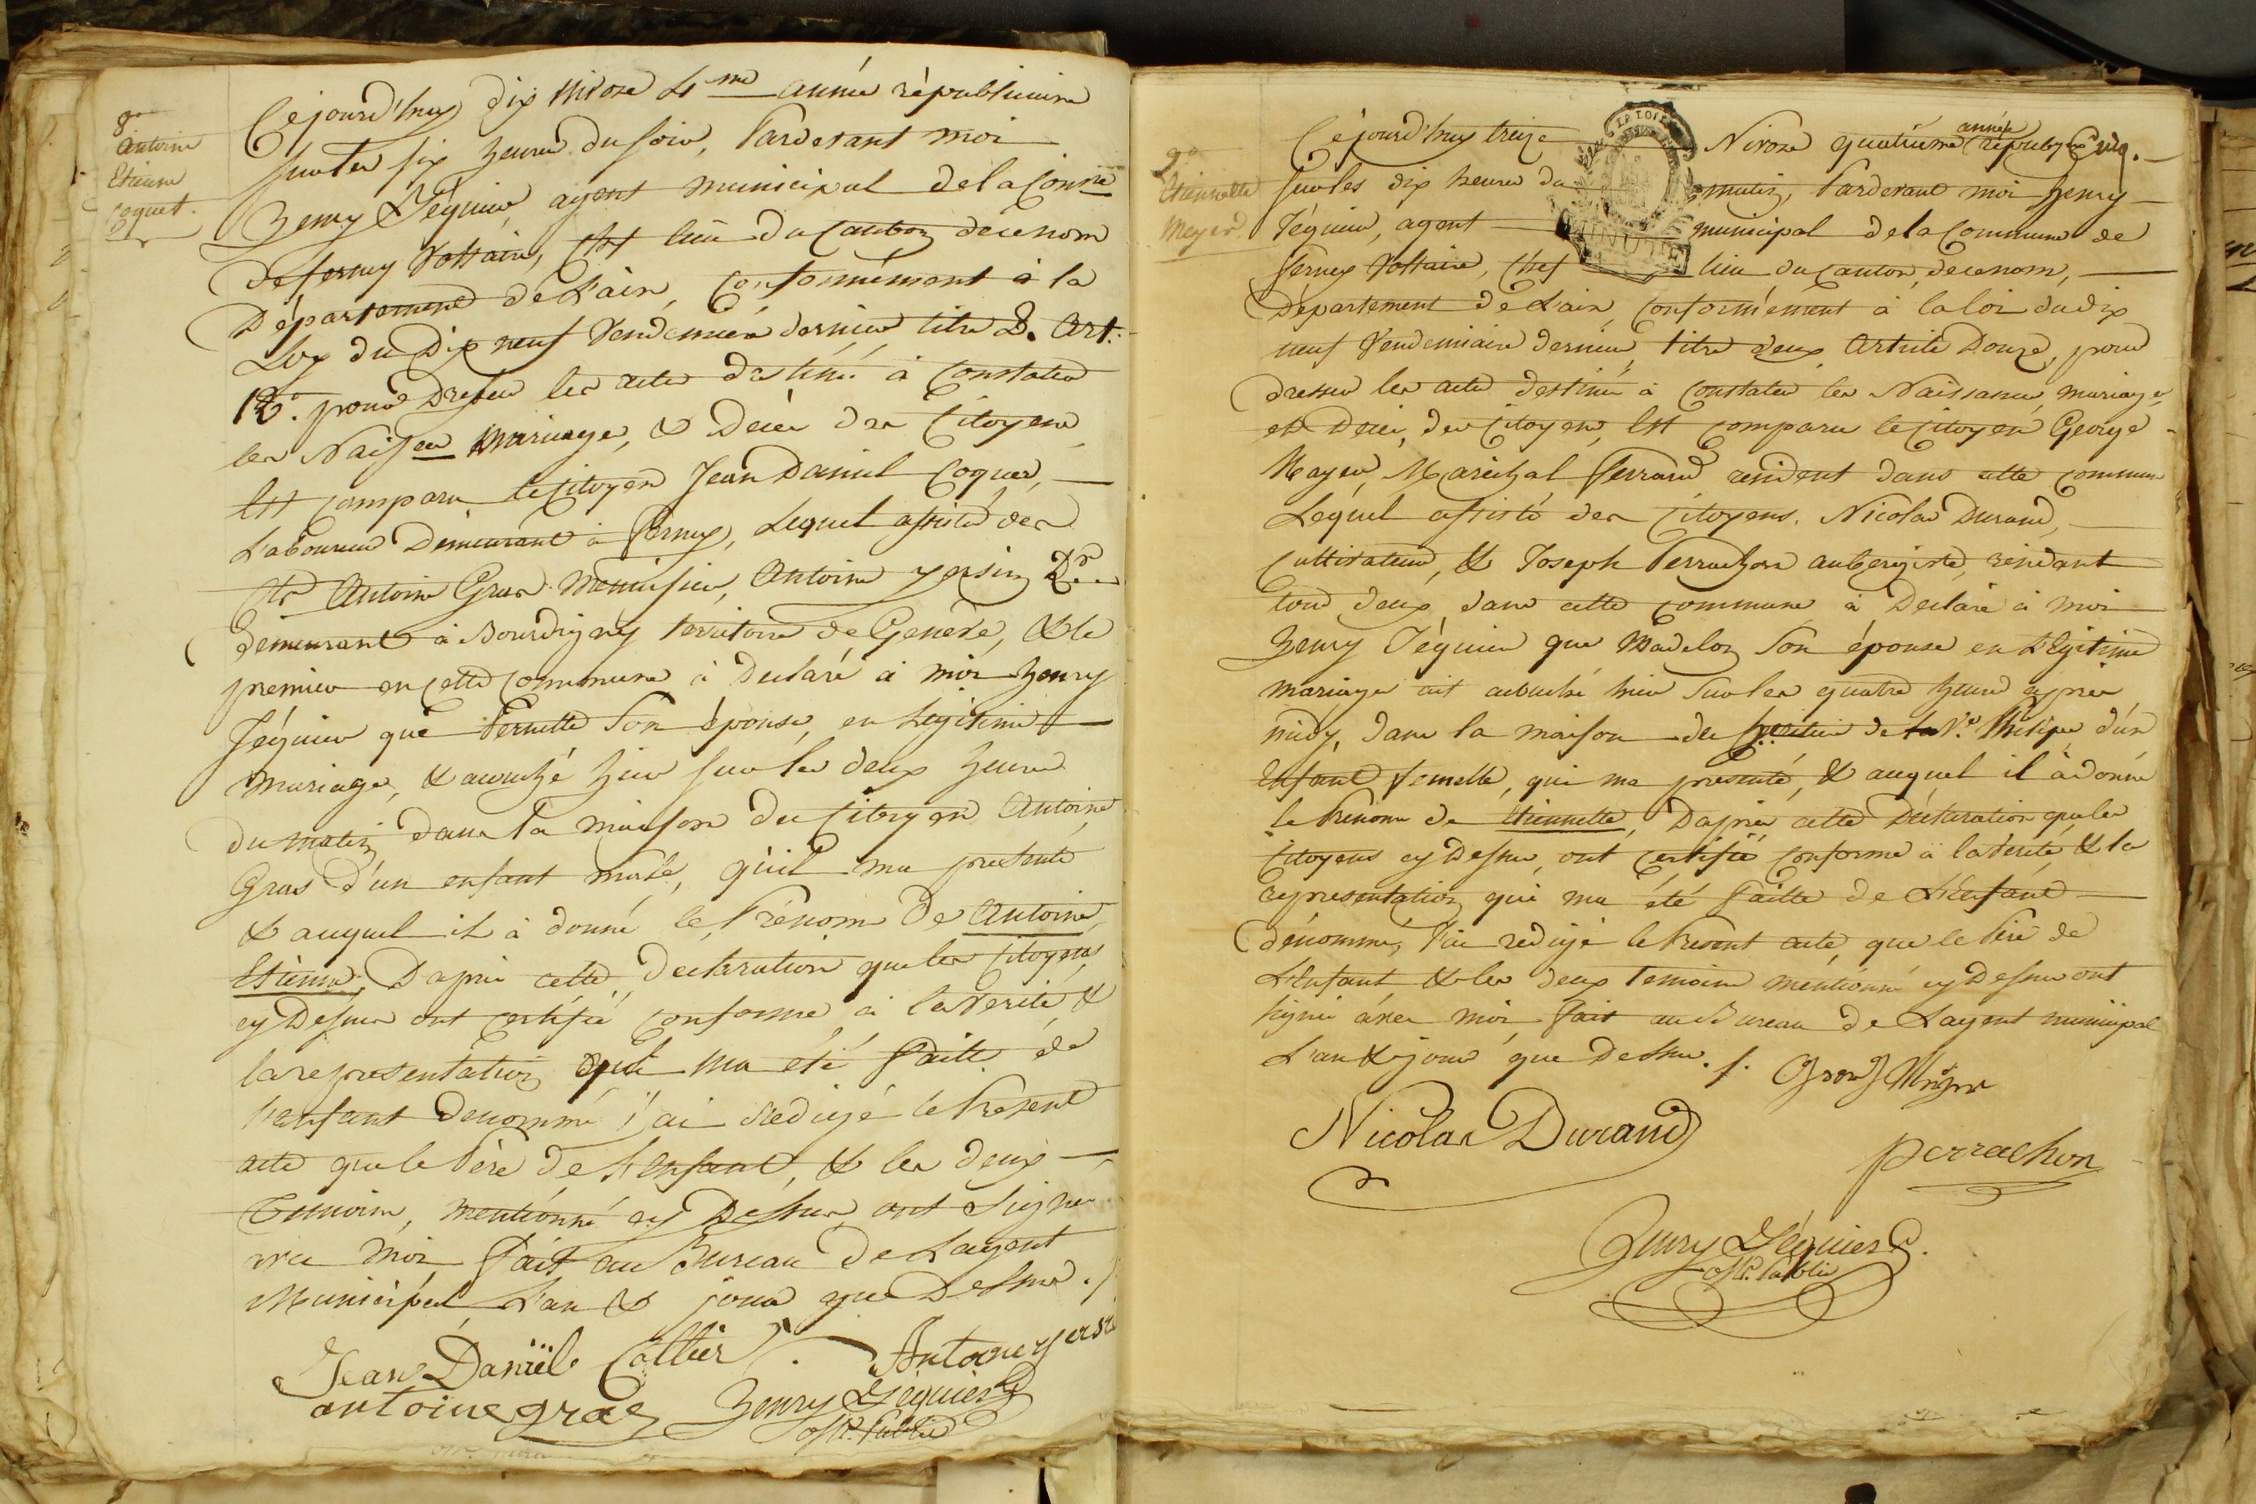 8°
Antoine
Etienne
Coquet.
Cejourd'huy dix Nivose 4me année républicaine
sur les six heures du soir, Pardevant moi
henry Jéquier, agent municipal de la Comne
de ferney Voltaire, chef lieu du Canton de ce nom
Département de L'ain, conformément à la
Loy du Dix neuf Vendemiere dernier, titre 2. Art.
12. pour Dresser les actes destinés à Constater
les Naisces Mariages, & Décès des Citoyens
Est comparu le Citoyen Jean Daniel Coquet,
Laboureur Demeurant à Ferney, Lequel assisté des
Cns Antoine Gras Menuisier, Antoine yersin
demeurant à Bourdigny territoire de Genève, & le
premier en cette commune à Declaré à moi henry
Jéquier que Pernette Son épouse, en Légitime
Mariage, & accouché hier sur les deux heures
du matin dans la maison du Citoyen Antoine
Gras d'un enfant mâle, qu'il ma presenté
& auquel il à donné le Prénom de Antoine,
Etienne. Daprès cette declaration que les Citoyens
cy Dessus ont certifié conforme à la Verité, &
la representation qui ma été faite de
l'enfant denommé j'ai Redigé le Présent
acte que le Père de l'enfant, & les deux
Temoins, mentionné cy Dessus ont Signé
avec moi fait au Bureau de Lagent
Municipal, L'an & jour que Dessus ./.
Jean Daniël Collier
Antoine yersin
antoine gras
Henry Jéquier
off. Public
2°
Etiennette
Meyer.
Cejourd'huy treize Nivose quatrieme année républicaine
sur les dix heures du matin, Pardevant moi henry
Jéquier, agent municipal de la Commune de
Ferney Voltaire, chef lieu du Canton de ce nom,
LA LOI
MINUTE
Département de L'ain, conformément à la loi du dix
neuf Vendemiaire dernier, titre deux Article Douze, pour
dresser les actes destiné à Constater les Naissances, mariages,
et Décès, des Citoyens, Est comparu le Citoyen George
Mayer, Maréchal ferrand résident dans cette commune
Lequel assisté des Citoyens. Nicolas Durand,
Cultivateur, & Joseph Perrachon aubergiste, résidant
tous deux dans cette commune à Declaré à moi
henry Jéquier que Madelon Son épouse en Légitime
mariage ait accouché hier sur les quatre heures après
midy, dans la maison des heritier de la Ve. Philipe d'un
Enfant femelle, qui ma presenté, & auquel il à donné
le Prénom de Etiennette, Daprès cette Déclaration que les
Citoyens cy Dessus, ont certifié conforme à la Verité & la
representation qui ma été faitte de L'Enfant
dénommé, J'ai redigé le Présent acte, que le Père de
L'Enfant & les deux temoins mentionné cy Dessus ont
signé avec moi fait au Bureau de Lagent municipal
L'an & jour que Dessus ./.
Nicolas Durand
perrachon
Henry Jéquier
off. Public